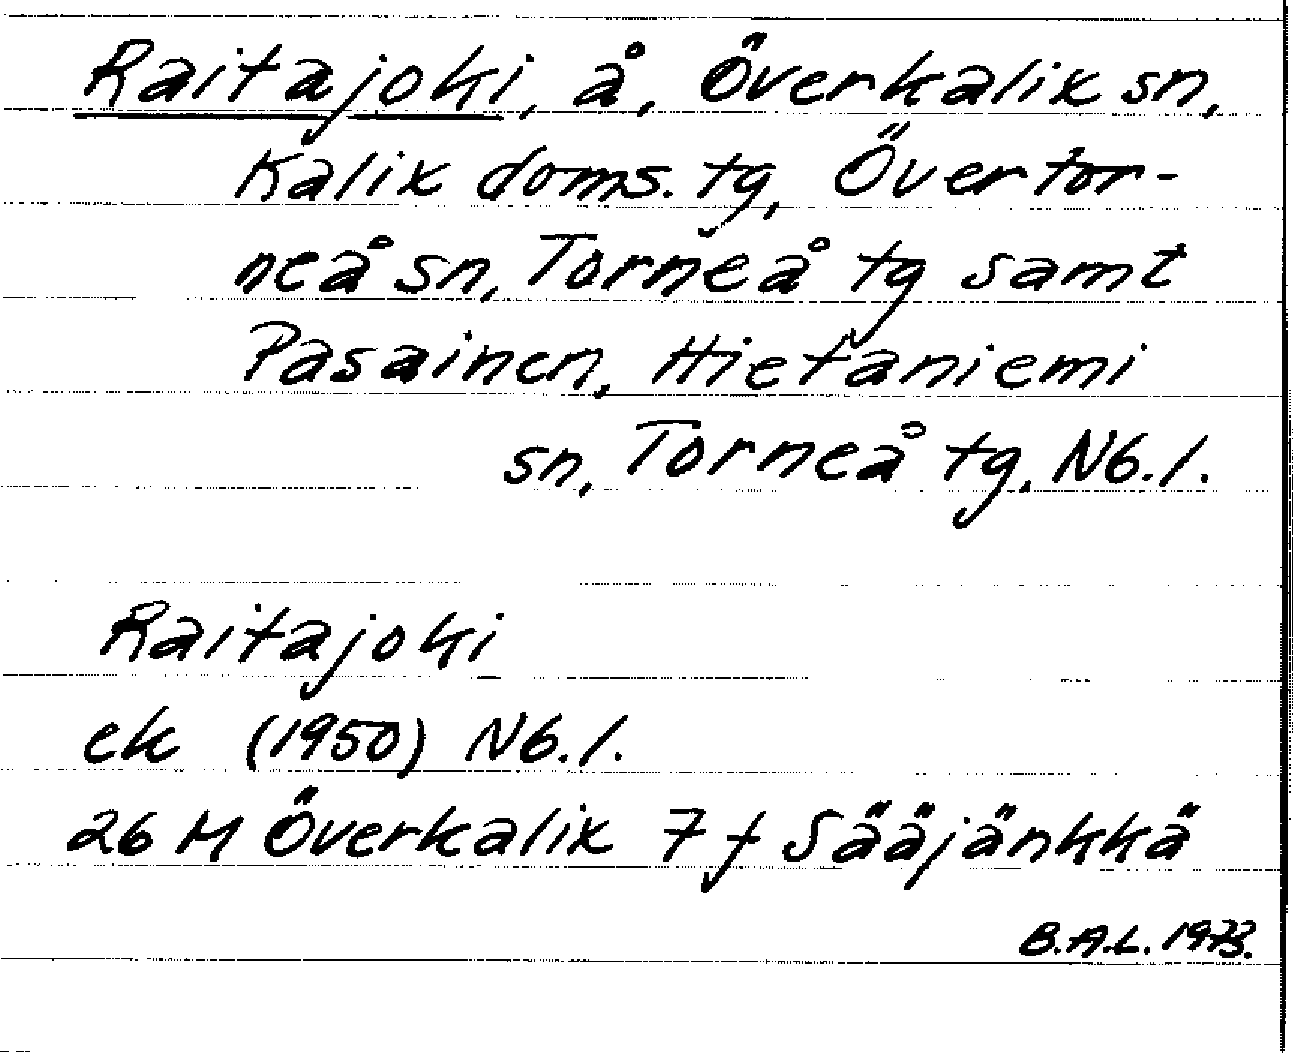 Raitajoki, å, Överkalix sn,
Kalix doms. tg, Övertor-
neå sn, Torneå tg samt
Pasainen, Hietaniemi
sn, Torneå tg, Nb.l.
Raitajoki
ek (1950) Nb.l.
26 M Överkalix 7 f Sääjänkkä
B.A.L. 1973.